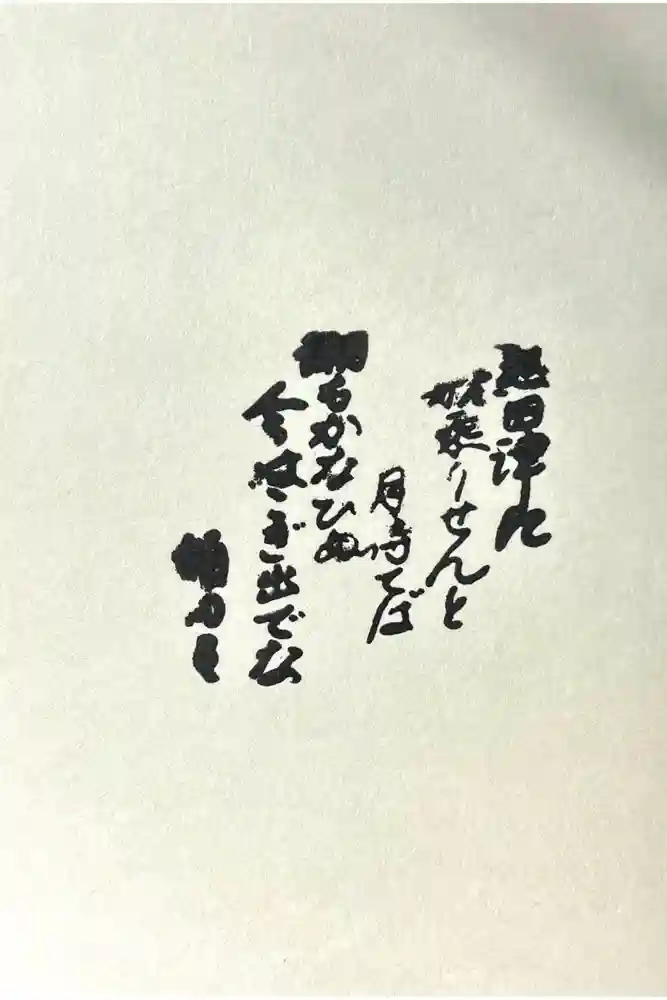 熟田津に
船乗りせんと
月待てば
潮もかなひぬ
今はこぎ出でな